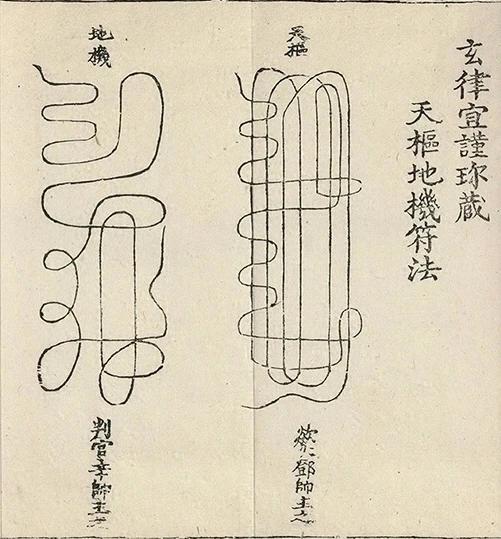 玄律宜謹珎蔵
天樞地機符法
天樞
欻火鄧帥主之
地機
判官辛帥主之